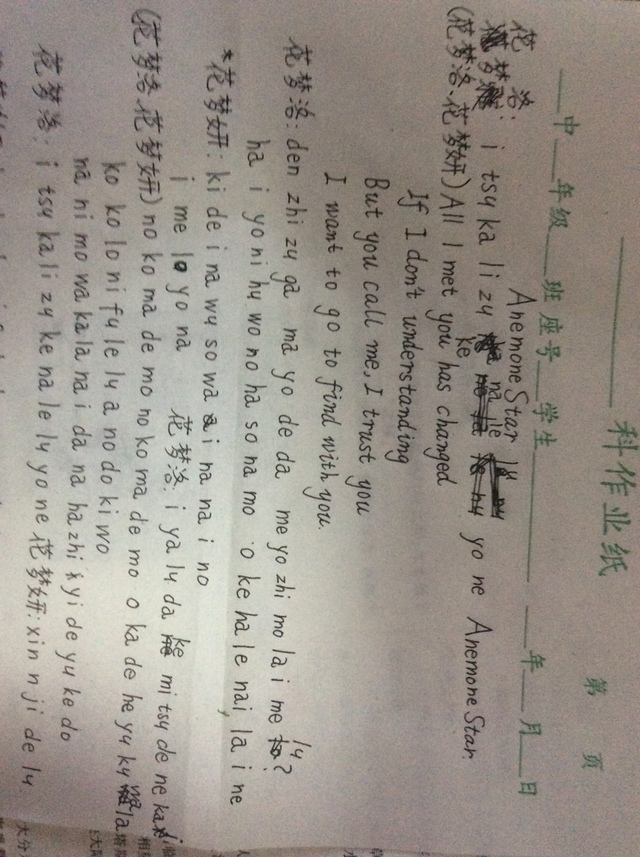 科作业纸
第 页
中 年级 班 座号 学生 年 月 日
Anemone Star
花 洛: i tsų ka li zų ke na le lų yo ne Anemone Star
(花梦洛、花梦妍) All I met you has changed
If I don't understanding
But you call me, I trust you
I want to go to find with you.
花梦洛: den zhi zų ga ma yo de da me yo zhi mo la i me lų?
ha i yo ni hų wo no ha so na mo o ke ha le nai, la i ne
*花梦妍: ki de i na wų so wa i na na i no
i me lo yo na 花梦洛: i ya lų da ke mi tsų de ne ka i
(花梦洛、花梦妍) no ko ma de mo no ko ma de mo o ka de he yų kų la
ko ko lo ni fų le lų a no do ki wo
na ni mo wa ka la na i da na ha zhi yi de yų ke do
花梦洛: i tsų ka li zų ke na le lų yo ne 花梦妍: xin n ji de lų